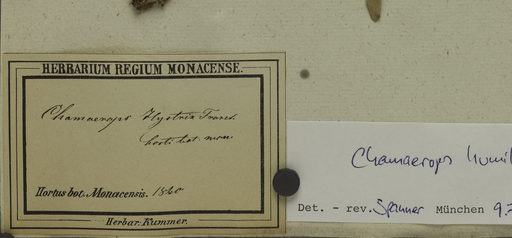 HERBARIUM REGIUM MONACENSE.
Chamaerops Hystrix
horti bot. mon.
Hortus bot. Monacensis. 1840
Herbar. Kummer.
Chamaerops humil
Det. - rev. Spanner München 9.